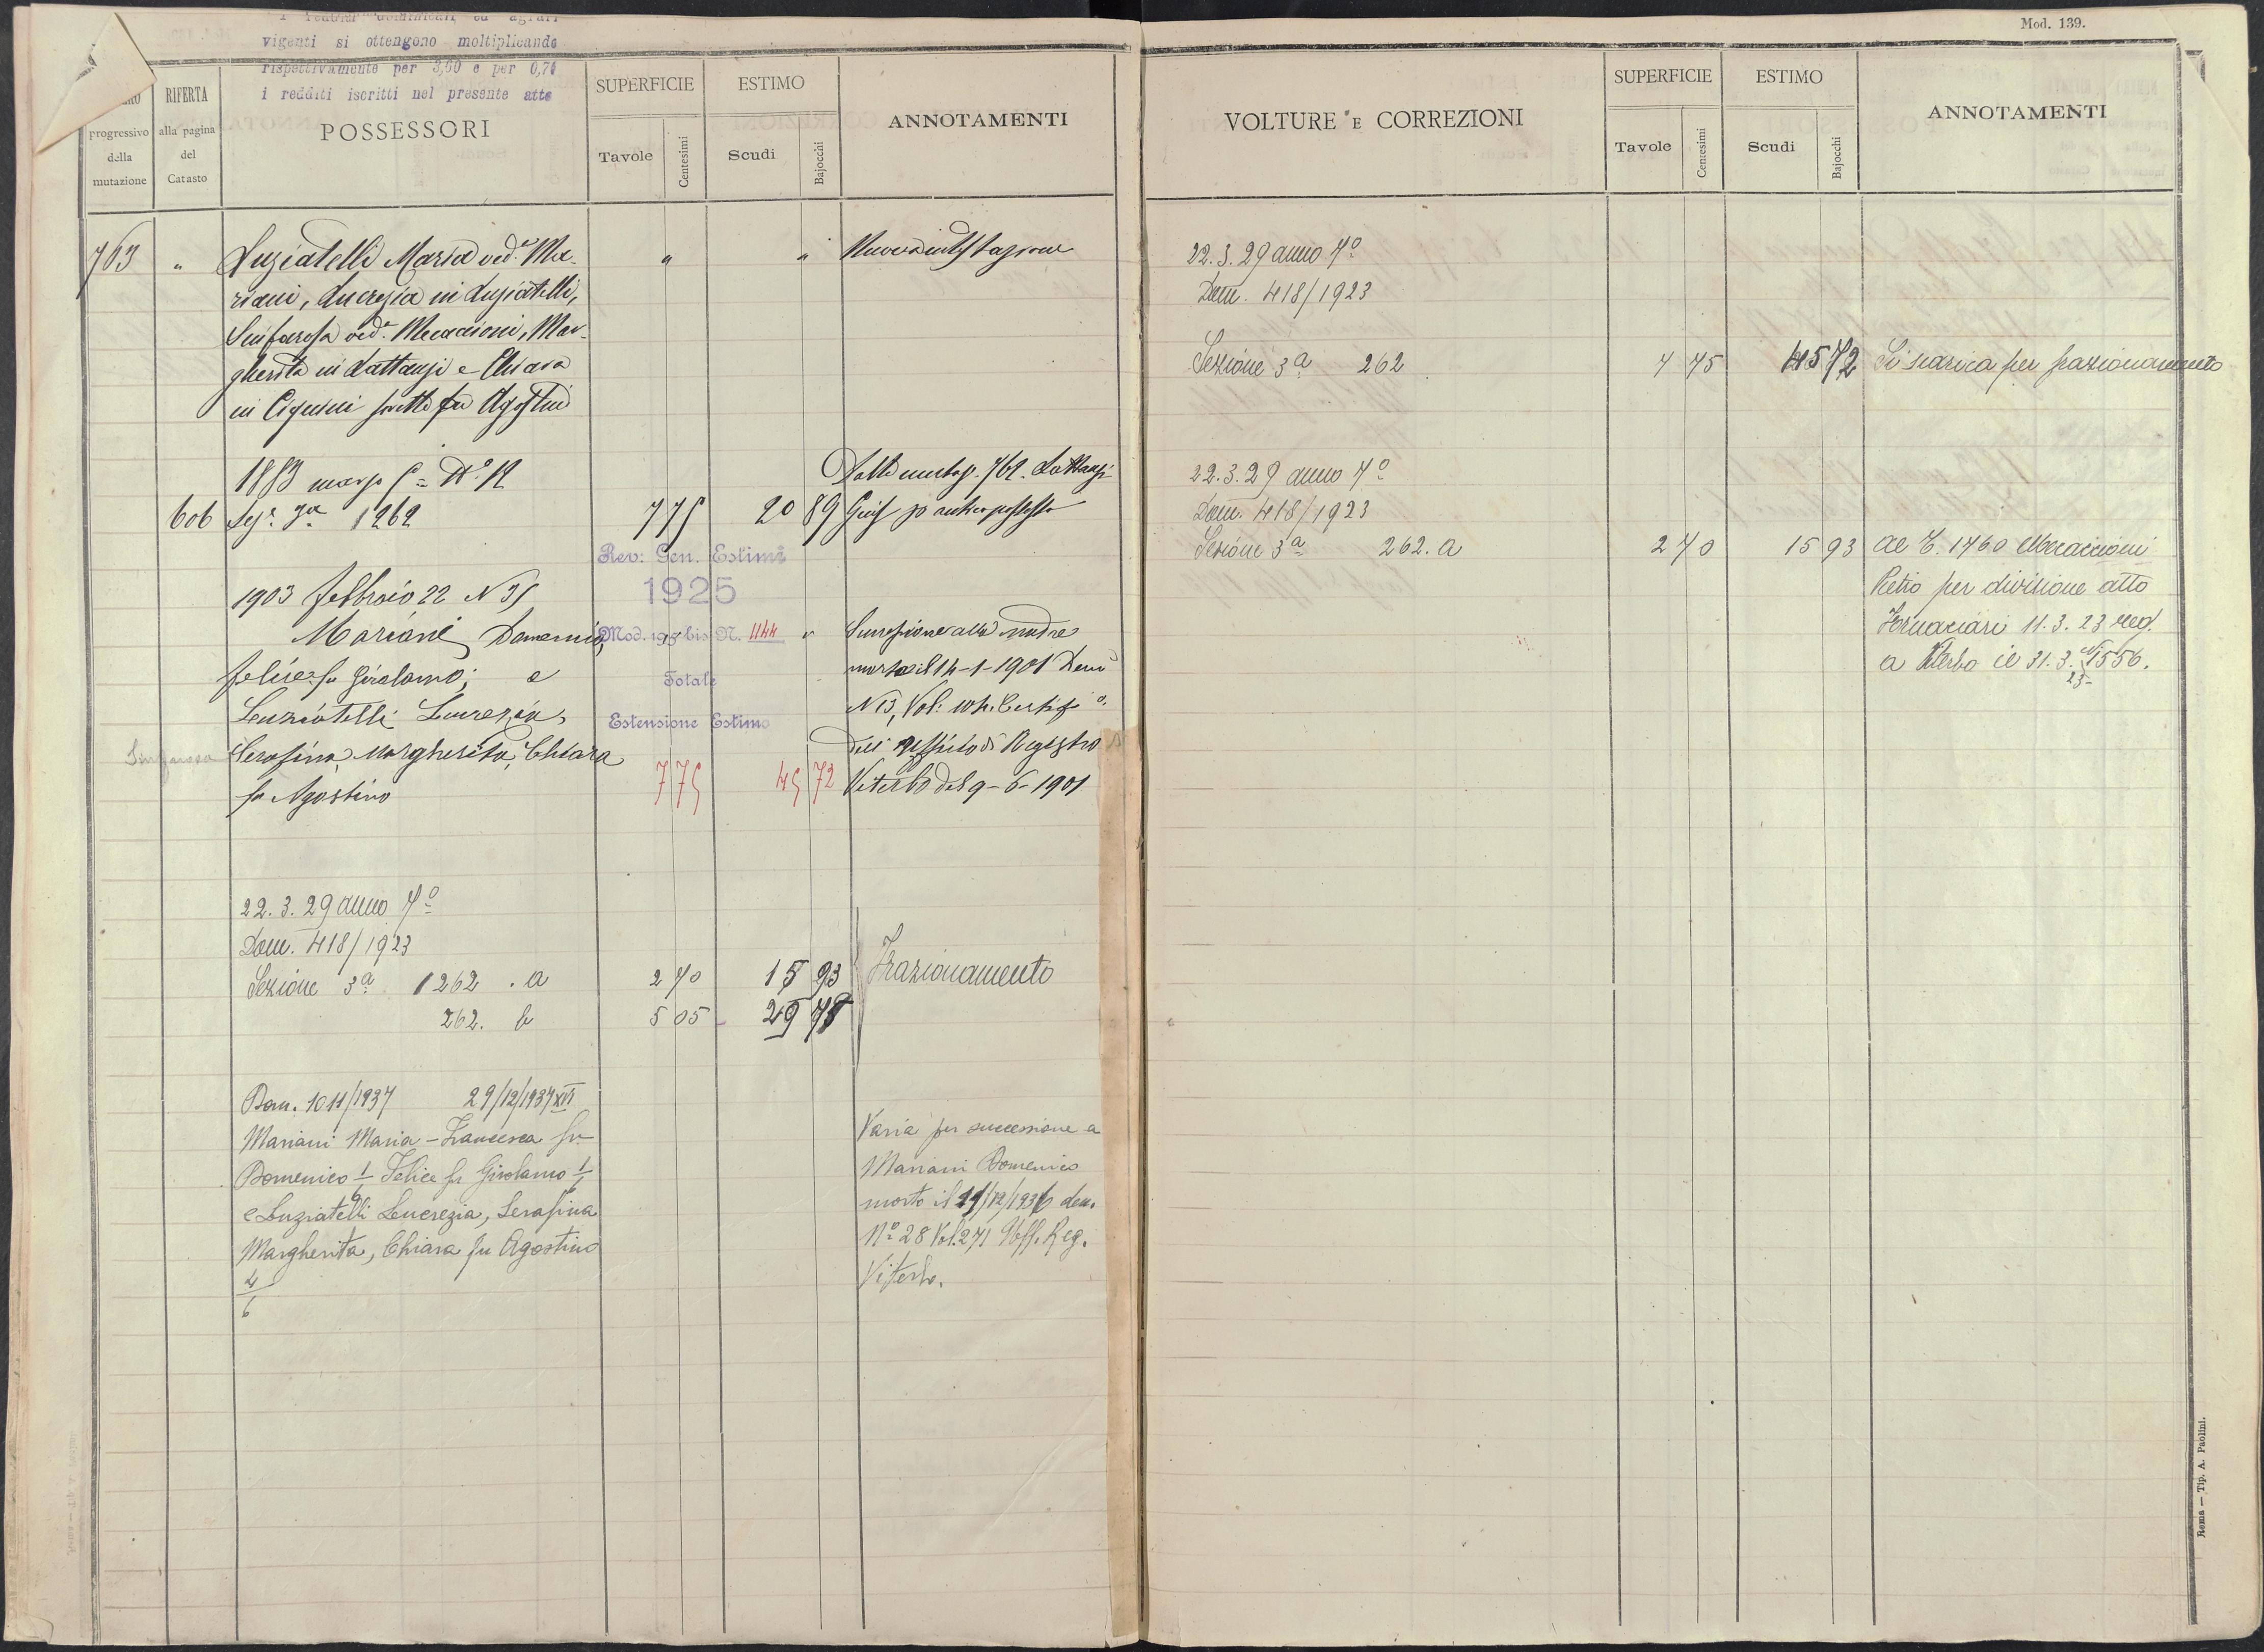 Mod. 139.
vigenti si ottengono moltiplicando
rispettivamente per 3,60 e per 0,70
i redditi iscritti nel presente atto
progressivo della mutazione
RIFERTA alla pagina del Catasto
POSSESSORI
SUPERFICIE
Tavole
Centesimi
ESTIMO
Scudi
Bajocchi
ANNOTAMENTI
763 " Luziatelli Maria ved.a Ma- " " Nuova intestazione
riani, Lucrezia in Luziatelli,
Sinforosa ved.a Mecaccioni, Mar-
gherita in Lattanzi e Chiara
in Cignini sorelle fu Agostino
1883 marzo
Lattanzi
606 Sez.e 3a 1 262 7 75 20 89
Rev: Gen. Estimi
1925
1903 febbraio 22 N 35
Mariani Domenico, Mod. bis N. 1144 " Successione alla madre
felice fu Girolamo; e morta il 14-1-1901 Den.
Totale
Luziatelli Lucrezia, N 13, Vol:
Estensione Estimo
Sinforosa Serafina, Margherita, Chiara dell'Ufficio di Registro
fu Agostino 7 75 45 72 Viterbo del 9-6-1901
22.3.29 anno 7º
Dom. 418/1923
Sezione 3a 1 262 . a 2 70 15 93 Frazionamento
262. b 5 05 29 79
Dom. 1011/1937 29/12/1937 XVI
Mariani Maria-Francesca fu Varia per successione a
Domenico 1/6 Felice fu Girolamo 1/6 Mariani Domenico
e Luziatelli Lucrezia, Serafina morto il /12/1936 den.
Margherita, Chiara fu Agostino Nº 28 Vol. 271 Uff. Reg.
4/6 Viterbo.
VOLTURE E CORREZIONI
SUPERFICIE
Tavole
Centesimi
ESTIMO
Scudi
Bajocchi
ANNOTAMENTI
22.3.29 anno 7º
Dom. 418/1923
Sezione 3a 262 7 75 45 72 Si scarica per frazionamento
22.3.29 anno 7º
Dom. 418/1923
Sezione 3a 262. a 2 70 15 93 al C. 1760 Mecaccioni
Pietro per divisione atto
Fornaciari 11.3.23 reg.
a Viterbo il 31.3.23 Nº 1556.
Roma — Tip. A. Paolini.